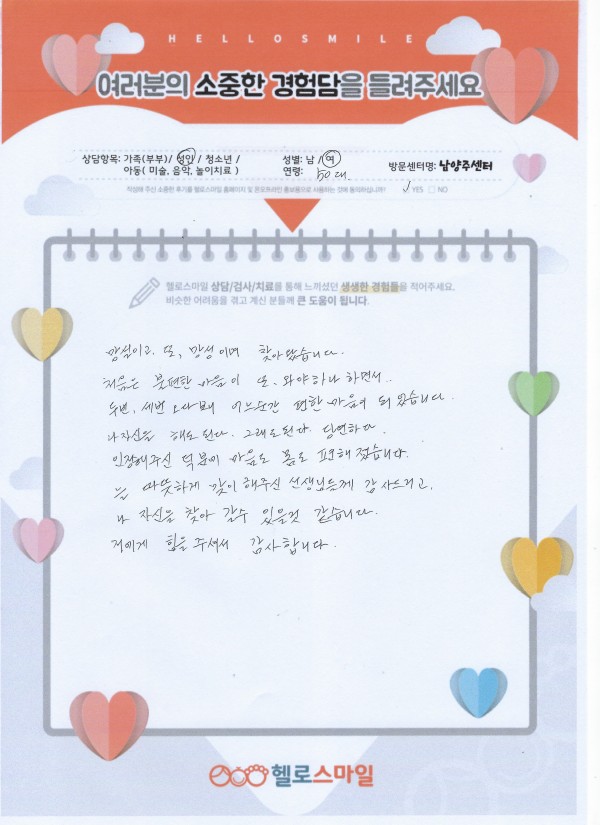 HELLOSMILE
여러분의 소중한 경험담을 들려주세요
상담항목: 가족(부부)/ 성인 / 청소년 /
아동( 미술, 음악, 놀이치료 )
성별: 남 / 여
연령: 50대.
방문센터명: 남양주센터
작성해 주신 소중한 후기를 헬로스마일 홈페이지 및 온오프라인 홍보용으로 사용하는 것에 동의하십니까? ✓ YES □ NO
헬로스마일 상담/검사/치료를 통해 느끼셨던 생생한 경험들을 적어주세요.
비슷한 어려움을 겪고 계신 분들께 큰 도움이 됩니다.
망설이고, 또, 망설이며 찾아왔습니다.
처음은 불편한 마음이 또, 와야하나 하면서..
두번, 세번 오다보니 어느순간 편한 마음이 되었습니다.
나 자신을 해도 된다. 그래도된다. 당연하다.
인정해주신 덕분에 마음도 몸도 편해졌습니다.
늘 따뜻하게 맞이해주신 선생님들께 감사드리고,
나 자신을 찾아 갈수 있을것 같습니다.
저에게 힘을 주셔서 감사합니다.
헬로스마일